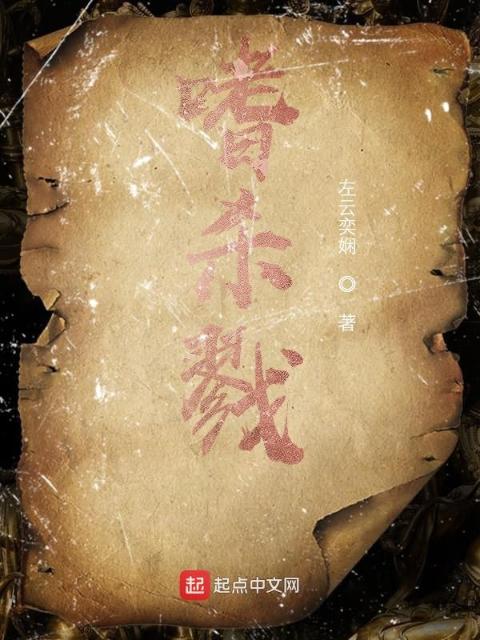 嗜杀戮
左云奕娴 著
起 起点中文网